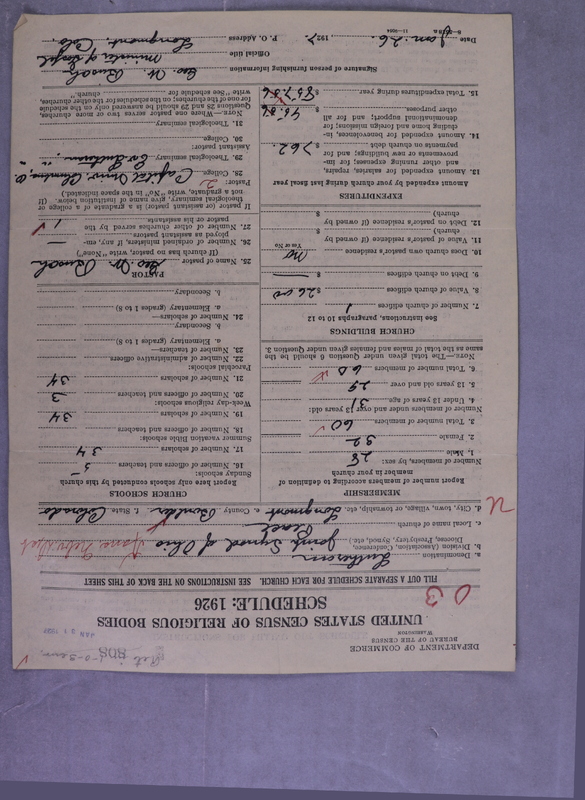 DEPARTMENT OF COMMERCE
BUREAU OF THE CENSUS
WASHINGTON
JAN 31 1927
UNITED STATES CENSUS OF RELIGIOUS BODIES
SCHEDULE: 1926
FILL OUT A SEPARATE SCHEDULE FOR EACH CHURCH. SEE INSTRUCTIONS ON THE BACK OF THIS SHEET
a. Denomination Lutheran
b. Division (Association, Conference, Diocese, Presbytery, Synod, etc.) Joint Synod of Ohio
c. Local name of church Peace
d. City, town, village, or township, etc. Longmont e. County Boulder f. State Colorado
MEMBERSHIP
Report number of members according to definition of member in your church
Number of members, by sex:
1. Male 28
2. Female 32
3. Total number of members 60
Number of members under and over 13 years old:
4. Under 13 years of age 31
5. 13 years old and over 29
6. Total number of members 60
NOTE.—The total given under Question 6 should be the same as the total of males and females given under Question 3.
CHURCH BUILDINGS
See instructions, paragraphs 10 to 12
7. Number of church edifices 1
8. Value of church edifices $ 2600
9. Debt on church edifices $
10. Does church own pastor's residence No
Yes or No
11. Value of pastor's residence (if owned by church) $
12. Debt on pastor's residence (if owned by church) $
EXPENDITURES
Amount expended by your church during last fiscal year
13. Amount expended for salaries, repairs, and other running expenses; for improvements or new buildings; and for payments on church debt $ 762.
14. Amount expended for benevolences, including home and foreign missions; for denominational support; and for all other purposes
15. Total expenditures during year $
CHURCH SCHOOLS
Report here only schools conducted by this church
Sunday schools:
16. Number of officers and teachers 5
17. Number of scholars 34
Summer vacation Bible schools:
18. Number of officers and teachers
19. Number of scholars 34
Week-day religious schools:
20. Number of officers and teachers 3
21. Number of scholars 34
Parochial schools:
22. Number of administrative officers
23. Number of teachers—
a. Elementary (grades 1 to 8)
b. Secondary
24. Number of scholars—
a. Elementary (grades 1 to 8)
b. Secondary
PASTOR
25. Name of pastor Geo. W. Busch
(If church has no pastor, write "None")
26. Number of ordained ministers, if any, employed as assistants
27. Number of other churches served by the pastor or his assistants 1
If pastor (or assistant pastor) is a graduate of a college or theological seminary, give name of institution below. (If not a graduate, write "No" in the space indicated.)
Pastor: 2
28. College Capital Univ. Columbus, O.
29. Theological seminary Ev. Lutheran
Assistant pastor:
30. College
31. Theological seminary
NOTE.—Where one pastor serves two or more churches, Questions 28 and 29 should be answered only on the schedule for one of the churches; on the schedules for the other churches, write "See schedule for church."
Signature of person furnishing information Geo. W. Busch
Official title Minister of Gospel
Date Jan. 26. 1927. P. O. Address Longmont, Colo.